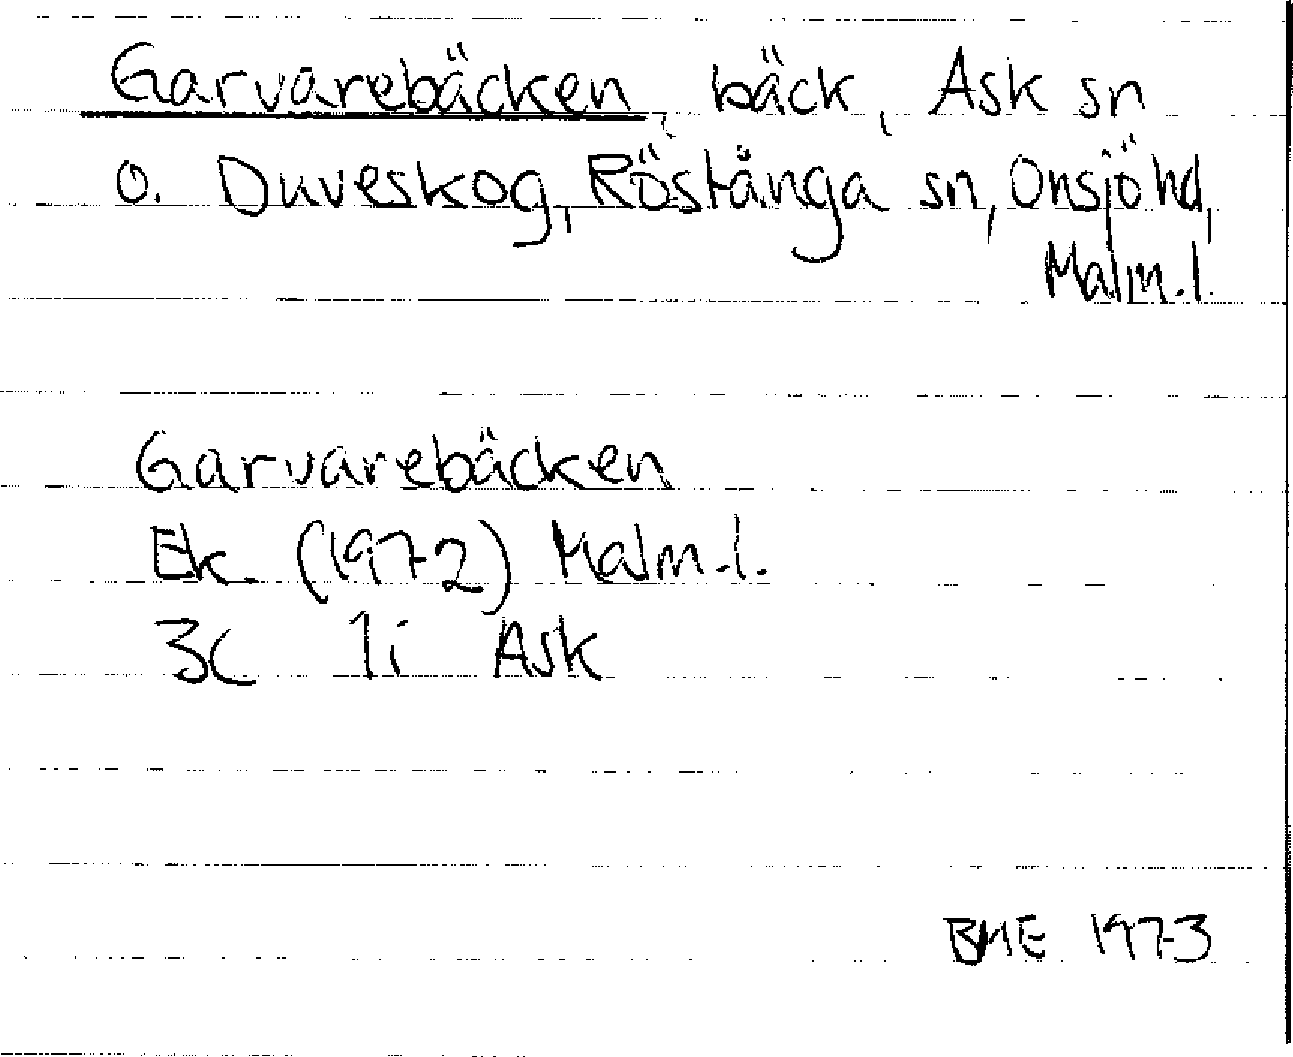 Garvarebäcken, bäck, Ask sn
o. Duveskog, Röstånga sn, Onsjö hd,
Malm.l.
Garvarebäcken
Ek (1972) Malm.l.
3C 1i Ask
BME 1973